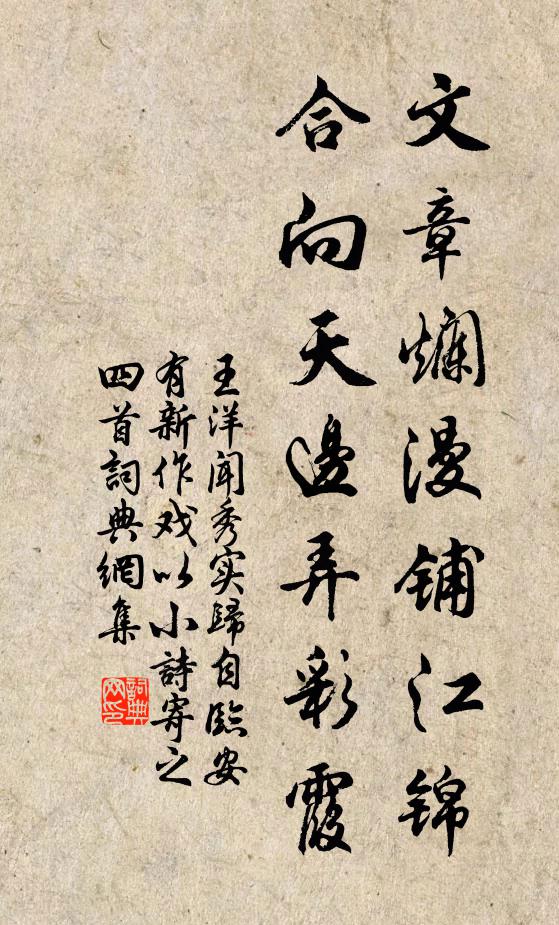 文章爛漫铺江锦
合向天邊弄彩霞
王洋闻秀实歸自臨安
有新作戏以小詩寄之
四首詞典網集
詞典
网印